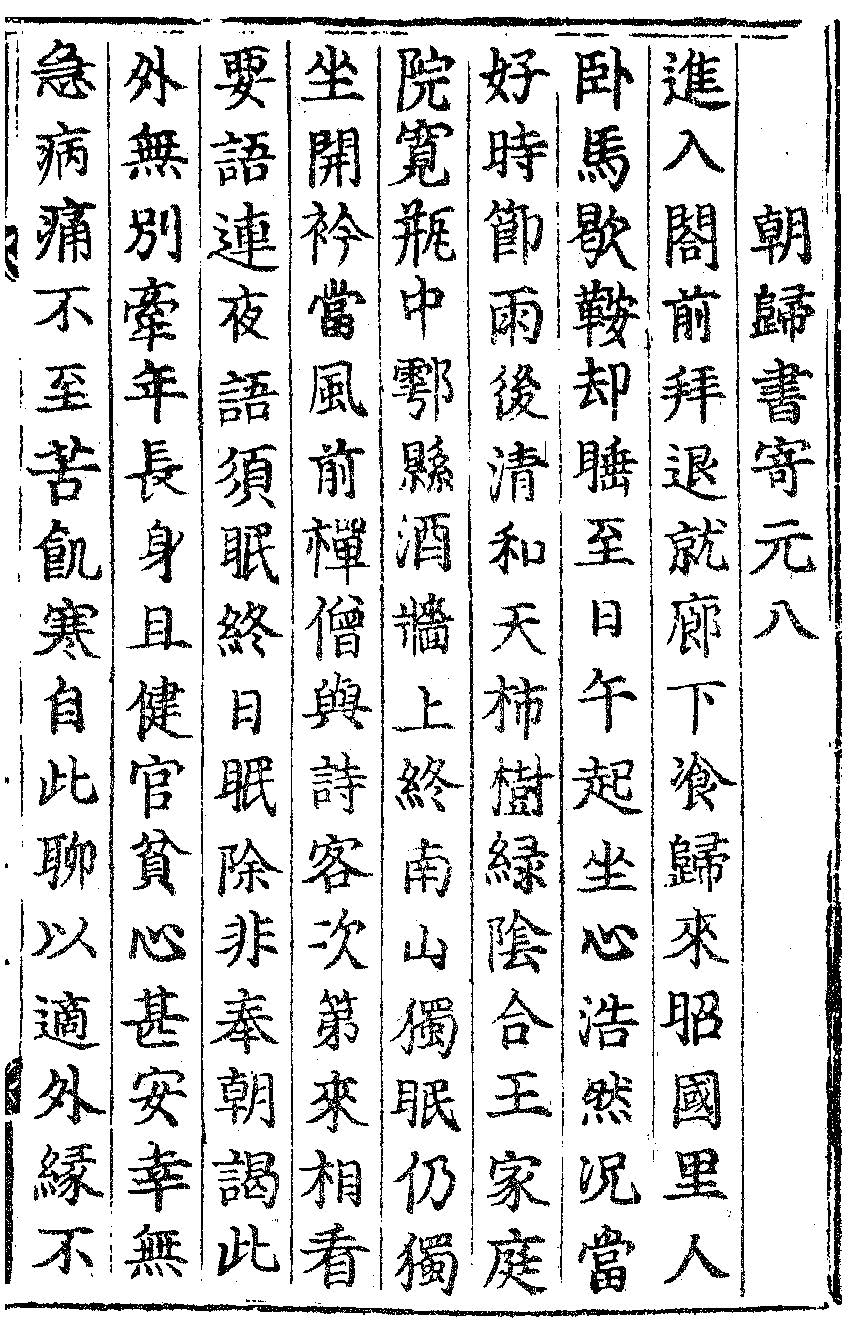 朝歸書寄元八
進入閤前拜退就廊下飡歸來昭國里人
卧馬歇鞍却睡至日午起坐心浩然况當
好時節雨後清和天柿樹緑陰合王家庭
院寛瓶中鄠縣酒牆上終南山獨眠仍獨
坐開衿當風前禪僧與詩客次第來相看
要語連夜語須眠終日眠除非奉朝謁此
外無別牽年長身且健官貧心甚安幸無
急病痛不至苦飢寒自此聊以適外縁不